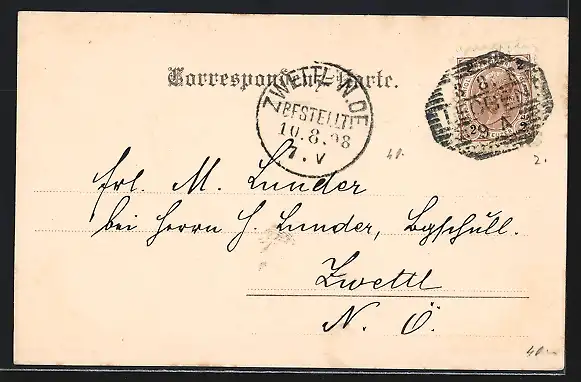 Correspondenz-Karte.
ZWETTL N.OE
BESTELLT
10.8.98
7.V
40.-
2.
Frl. M. Lunder
bei Herrn H. Lunder,
Zwettl
N. Ö.
40.-